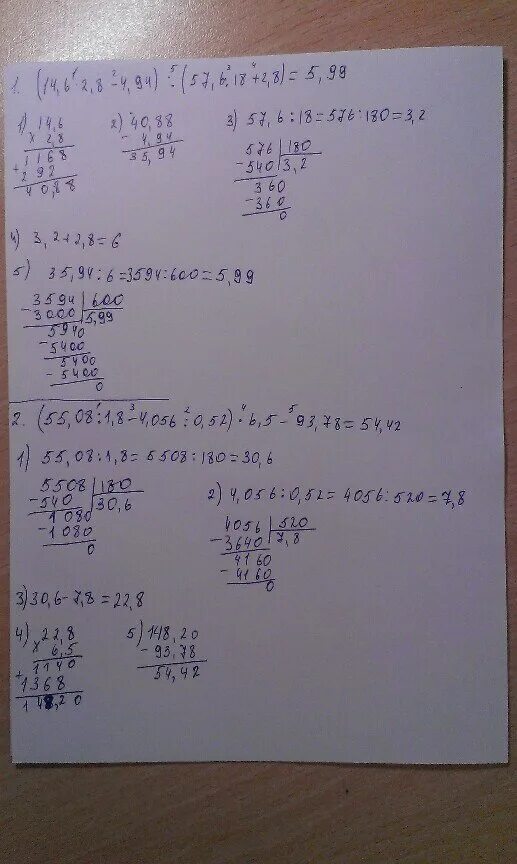 1. (14,6·2,8-4,94):(57,6:18+2,8)=5,99
1) 14,6
× 2,8
1168
+ 292
40,88
2) 40,88
- 4,94
35,94
3) 57,6:18=576:180=3,2
576 | 180
-540 | 3,2
360
-360
0
4) 3,2+2,8=6
5) 35,94:6=3594:600=5,99
3594 | 600
-3000 | 5,99
5940
-5400
5400
-5400
0
2. (55,08:1,8-4,056:0,52)·6,5-93,78=54,42
1) 55,08:1,8=5508:180=30,6
5508 | 180
-540 | 30,6
1080
-1080
0
2) 4,056:0,52=4056:520=7,8
4056 | 520
-3640 | 7,8
4160
-4160
0
3) 30,6-7,8=22,8
4) 22,8
× 6,5
1140
+ 1368
148,20
5) 148,20
- 93,78
54,42